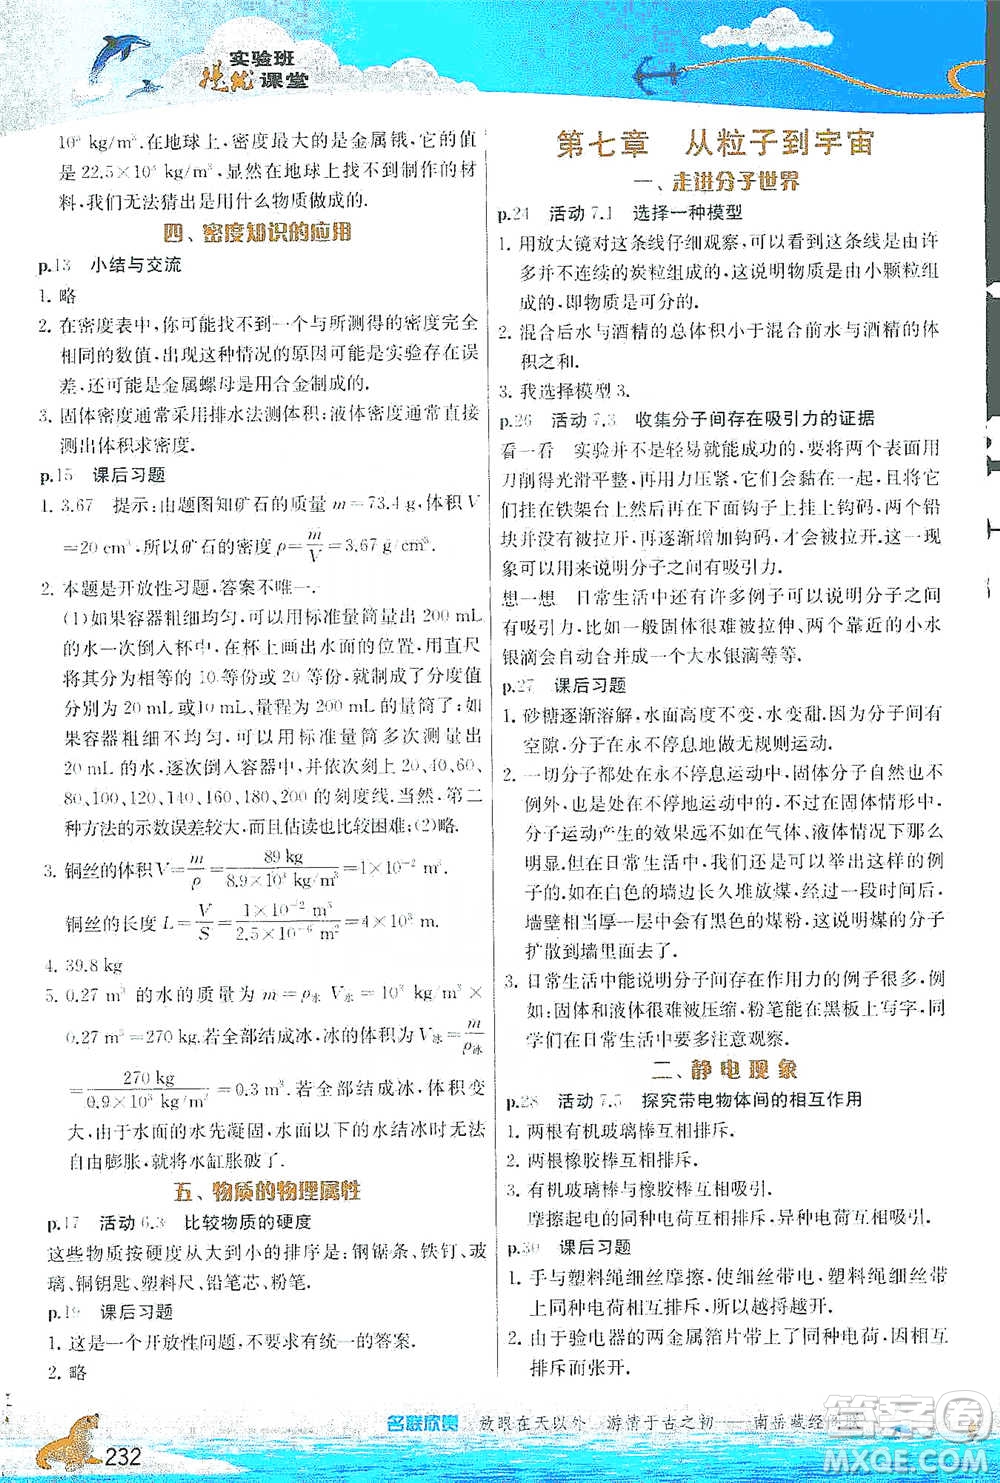 实验班
提优课堂
10³ kg/m³.在地球上,密度最大的是金属锇,它的值
是 22.5×10³ kg/m³,显然在地球上找不到制作的材
料,我们无法猜出是用什么物质做成的.
四、密度知识的应用
p.13 小结与交流
1. 略
2. 在密度表中,你可能找不到一个与所测得的密度完全
相同的数值,出现这种情况的原因可能是实验存在误
差,还可能是金属螺母是由合金制成的.
3. 固体密度通常采用排水法测体积;液体密度通常直接
测出体积求密度.
p.15 课后习题
1. 3.67 提示:由题图知矿石的质量 m=73.4 g,体积 V
=20 cm³,所以矿石的密度 ρ=m/V=3.67 g/cm³.
2. 本题是开放性习题,答案不唯一.
(1)如果容器粗细均匀,可以用标准量筒量出 200 mL
的水一次倒入杯中,在杯上画出水面的位置,直接
将其分为相等的 10 等份或 20 等份,就制成了分度值
分别为 20 mL 或 10 mL、量程为 200 mL 的量筒了;如
果容器粗细不均匀,可以用标准量筒多次测量出
20 mL 的水,逐次倒入量杯中,依次画出 20、40、60、
80、100、120、140、160、180、200 的刻度线.当然,第二
种方法的示数误差较大,而且估读也比较困难;(2)略.
3. 铜丝的体积 V=m/ρ=89 kg/(8.9×10³ kg/m³)=1×10⁻² m³,
铜丝的长度 L=V/S=(1×10⁻² m³)/(2.5×10⁻⁶ m²)=4×10³ m.
4. 39.8 kg
5. 0.27 m³ 的水的质量为 m=ρ水 V水=10³ kg/m³×
0.27 m³=270 kg.若全部结成冰,冰的体积为 V冰=m/ρ冰
=270 kg/(0.9×10³ kg/m³)=0.3 m³;若全部结成冰,体积变
大,由于水面的水先凝固,水面以下的水结冰时无法
自由膨胀,就将水缸胀破了.
五、物质的物理属性
p.17 活动 6.3 比较物质的硬度
这些物质按硬度从大到小的排序是:钢锯条、铁钉、玻
璃、铜钥匙、塑料尺、铅笔芯、粉笔.
p.19 课后习题
1. 这是一个开放性问题,不要求有统一的答案.
2. 略
第七章 从粒子到宇宙
一、走进分子世界
p.24 活动 7.1 选择一种模型
1. 用放大镜对这条线仔细观察,可以看到这条线是由许
多并不连续的炭粒组成的,这说明物质是由小颗粒组
成的,即物质是可分的.
2. 混合后水与酒精的总体积小于混合前水与酒精的体
积之和.
3. 我选择模型 3.
p.26 活动 7.3 收集分子间存在吸引力的证据
看一看 实验并不是轻易就能成功的,要将两个表面用
刀削得光滑平整,再用力压紧,让它们黏在一起,将它
们挂在铁架台上然后在下面钩子上挂上钩码,两个铅
块并没有被拉开,再逐渐增加钩码,才会被拉开.这一现
象可以说明分子之间有吸引力.
想一想 日常生活中还有许多例子可以说明分子之间
有吸引力,比如一般固体很难被拉伸、两个靠近的小水
银滴会自动合并成一个大水银滴等等.
p.27 课后习题
1. 砂糖逐渐溶解,水面高度不变,水变甜.因为分子间有
空隙,分子在永不停息地做无规则运动.
2. 一切分子都处在永不停息运动中,固体分子自然也不
例外,但是由于固体分子间距较小,所以在固体情形中,
分子运动产生的效果远不如在气体、液体情况下那么
明显.但在日常生活中,我们还是可以看到这样的例
子的.如在白色的墙边长久堆放煤,经过一段时间后,
墙壁相当厚的一层中会有黑色的煤粉,这说明煤的分子
扩散到墙里面去了.
3. 日常生活中能说明分子间存在作用力的例子很多,例
如:固体和液体很难被压缩,粉笔能在黑板上写字,同
学们在日常生活中要多注意观察.
二、静电现象
p.28 活动 7.5 探究带电物体间的相互作用
1. 两根有机玻璃棒互相排斥.
2. 两根橡胶棒互相排斥.
3. 有机玻璃棒与橡胶棒互相吸引.
摩擦起电的同种电荷互相排斥,异种电荷互相吸引.
p.30 课后习题
1. 手与塑料绳细丝摩擦,使细丝带电,塑料绳细丝带
上了同种电荷而互相排斥,所以越捋越开.
2. 由于验电器的两金属箔片带上了同种电荷,互相
排斥而张开.
232
名联欣赏 放眼在天以外 游情于古之初——南岳藏经